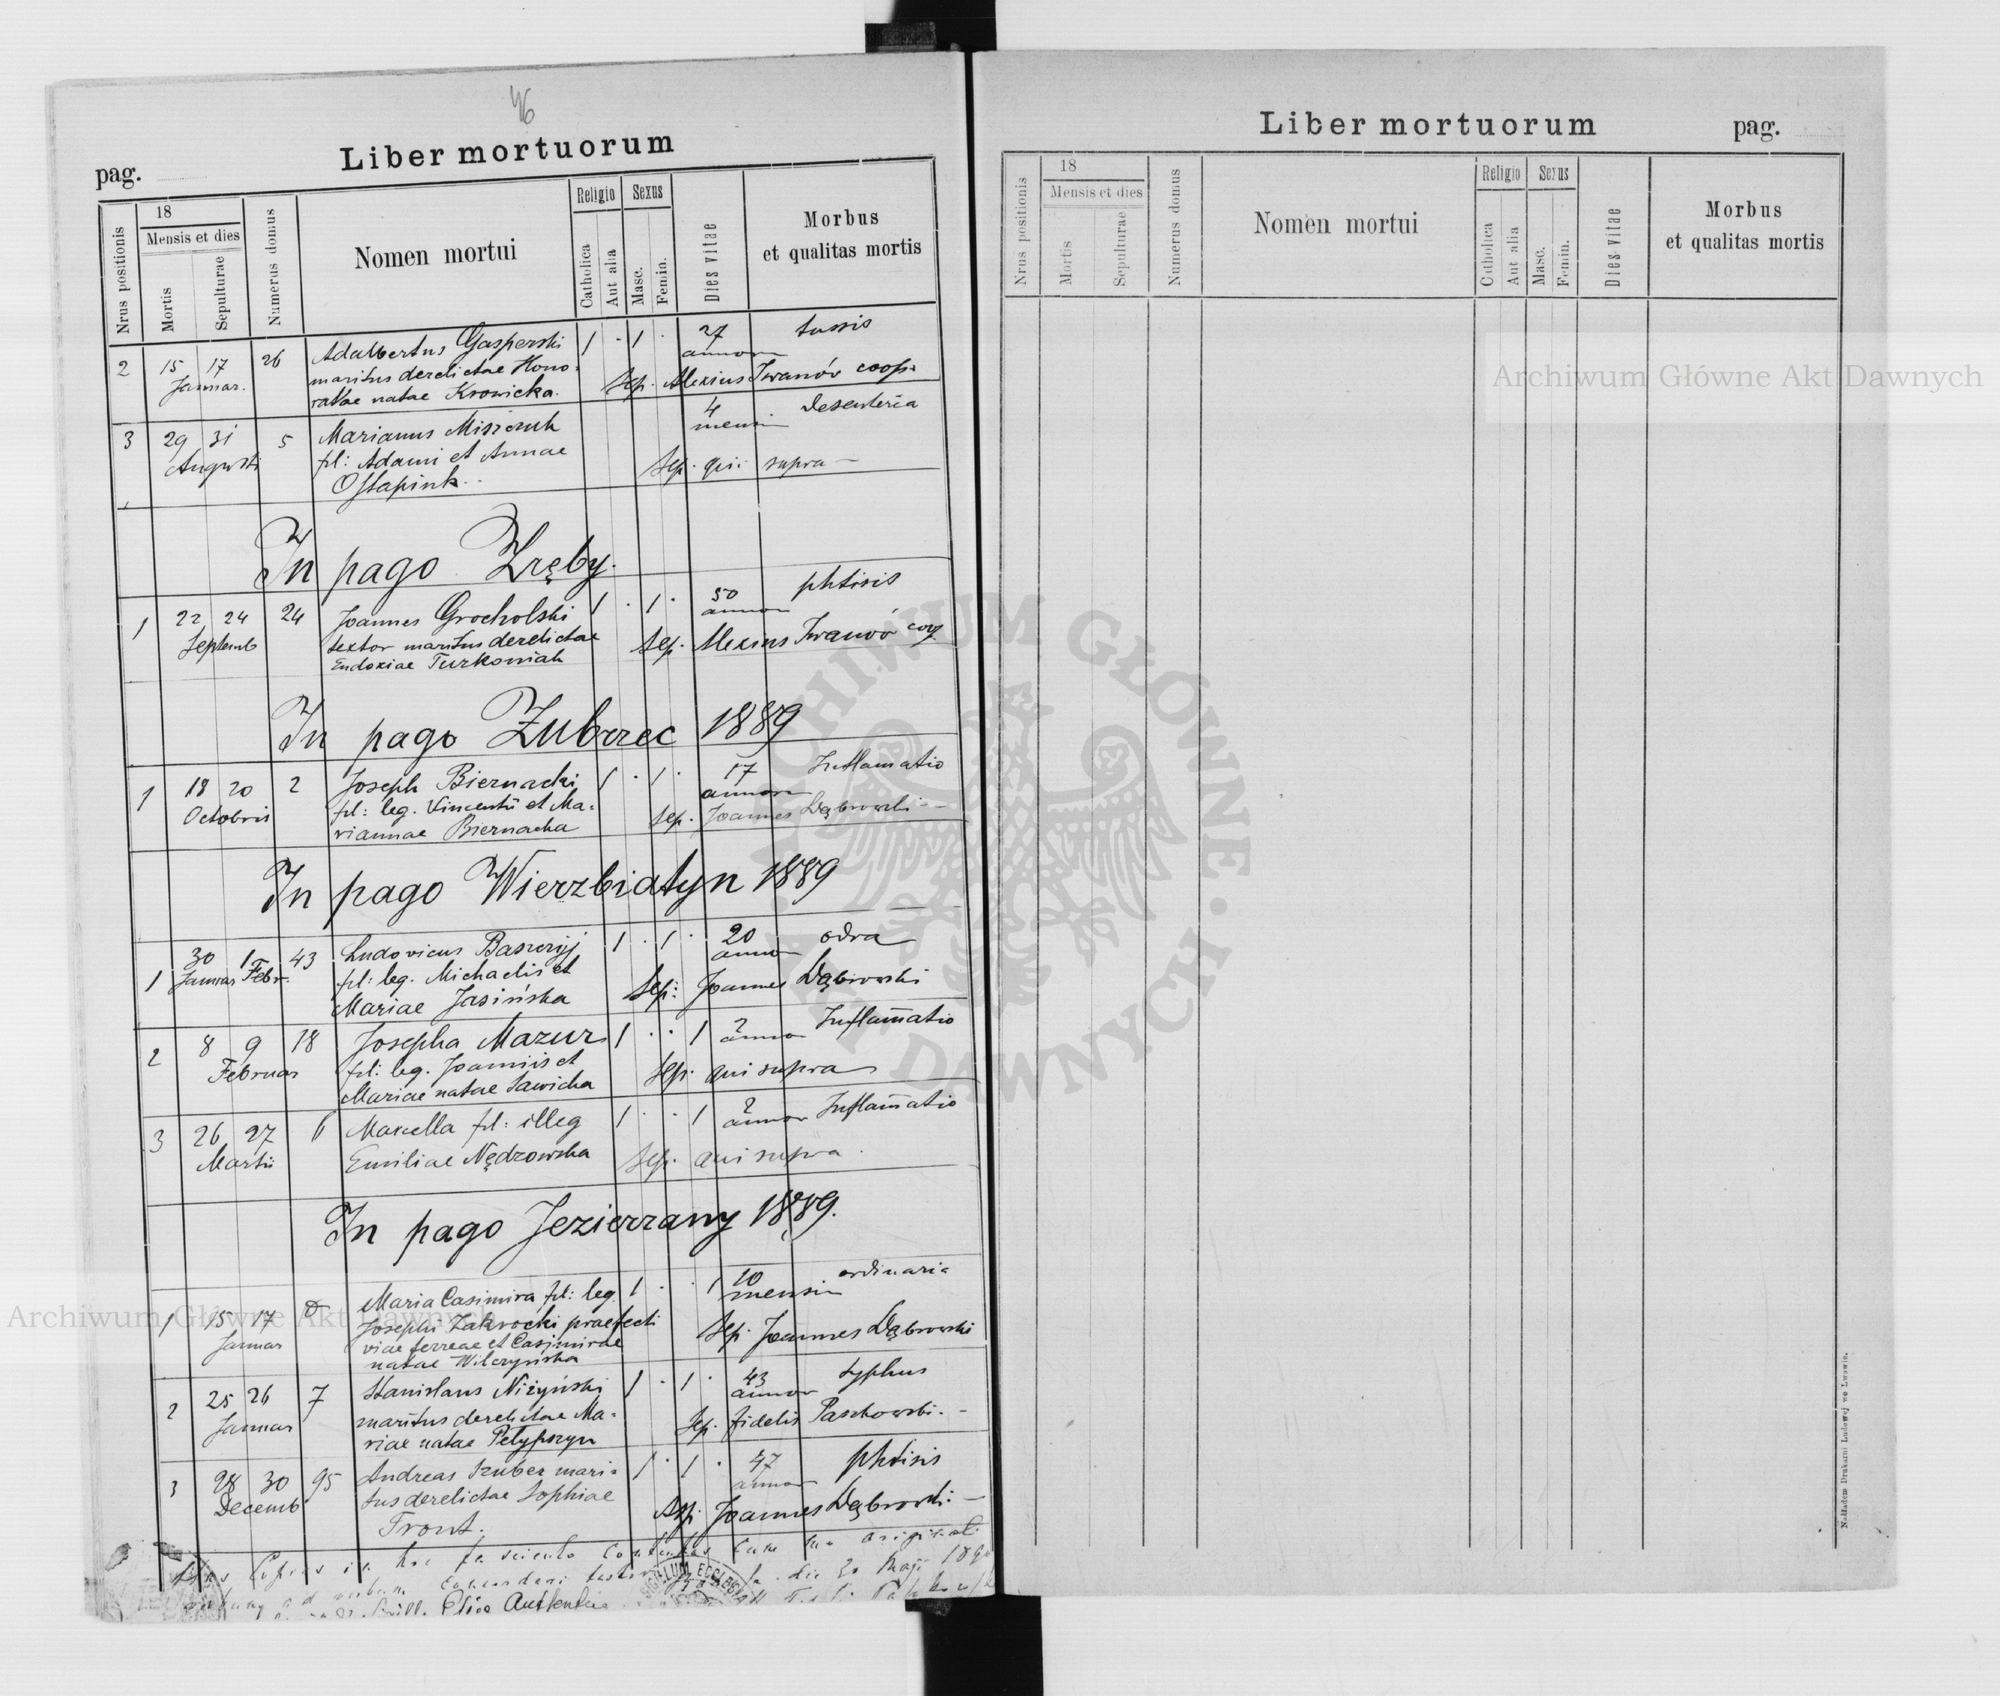 46
Liber mortuorum
pag.
Nrus positionis
18
Mensis et dies
Mortis
Sepulturae
Numerus domus
Nomen mortui
Religio
Catholica
Aut alia
Sexus
Masc.
Femin.
Dies vitae
Morbus
et qualitas mortis
2 15 17 26 Adalbertus Gasperski 1 · 1 · 27 tussis
Januar. maritus derelictae Hono- annor
ratae natae Krowicka. Sep. Alexius Iwanów coop.
3 29 31 5 Marianus 4 Desenteria
Augusti fil: Adami et Annae mensi
Ostapiuk. Sep. qui supra
In pago Zręby.
1 22 24 24 Joannes Grocholski 1 · 1 · 50 phtisis
Septemb textor maritus derelictae annor
Eudoxiae Turkoniak Sep. Alexius Iwanów coop
In pago Zubrzec 1889
1 18 20 2 Joseph Biernacki 1 · 1 · 17 Inflamatio
Octobris fil: leg. Vincentii et Ma- annor
riannae Biernacka Sep. Joannes Dąbrowski
In pago Wierzbiatyn 1889
1 30 1 43 Ludovicus 1 · 1 · 20 odra
Januar Febr. fil: leg. Michaelis et annor
Mariae Jasińska Sep: Joannes Dąbrowski
2 8 9 18 Josepha Mazur 1 · · 1 2 Inflamatio
Februar fil: leg. Joannis et annor
Mariae natae Sawicka Sep. qui supra
3 26 27 6 Marcella fil: illeg 1 · · 1 2 Inflamatio
Martii Emiliae Nędzowska annor
Sep. qui supra
In pago Jezierzany 1889.
1 15 17 Maria Casimira fil: leg. 1 · · 1 10 ordinaria
Januar Josephi Zakrocki praefecti mensi
viae ferreae et Casimirae Sep. Joannes Dąbrowski
natae Wilczyńska
2 25 26 7 Stanislaus Niżyński 1 · 1 · 43 typhus
Januar maritus derelictae Ma- annor
riae natae Sep. fidelis Paszkowski.
3 28 30 95 Andreas Szuber mari- 1 · 1 · 47 phtisis
Decemb tus derelictae Sophiae annor
Front. Sep. Joannes Dąbrowski
Copias in hoc contentas cum suo originali
die 20 Maji
Liber mortuorum
pag.
Nrus positionis
18
Mensis et dies
Mortis
Sepulturae
Numerus domus
Nomen mortui
Religio
Catholica
Aut alia
Sexus
Masc.
Femin.
Dies vitae
Morbus
et qualitas mortis
Nakładem Drukarni Ludowej we Lwowie.
Archiwum Główne Akt Dawnych
Archiwum Główne Akt Dawnych
ARCHIWUM GŁÓWNE · AKT DAWNYCH ·